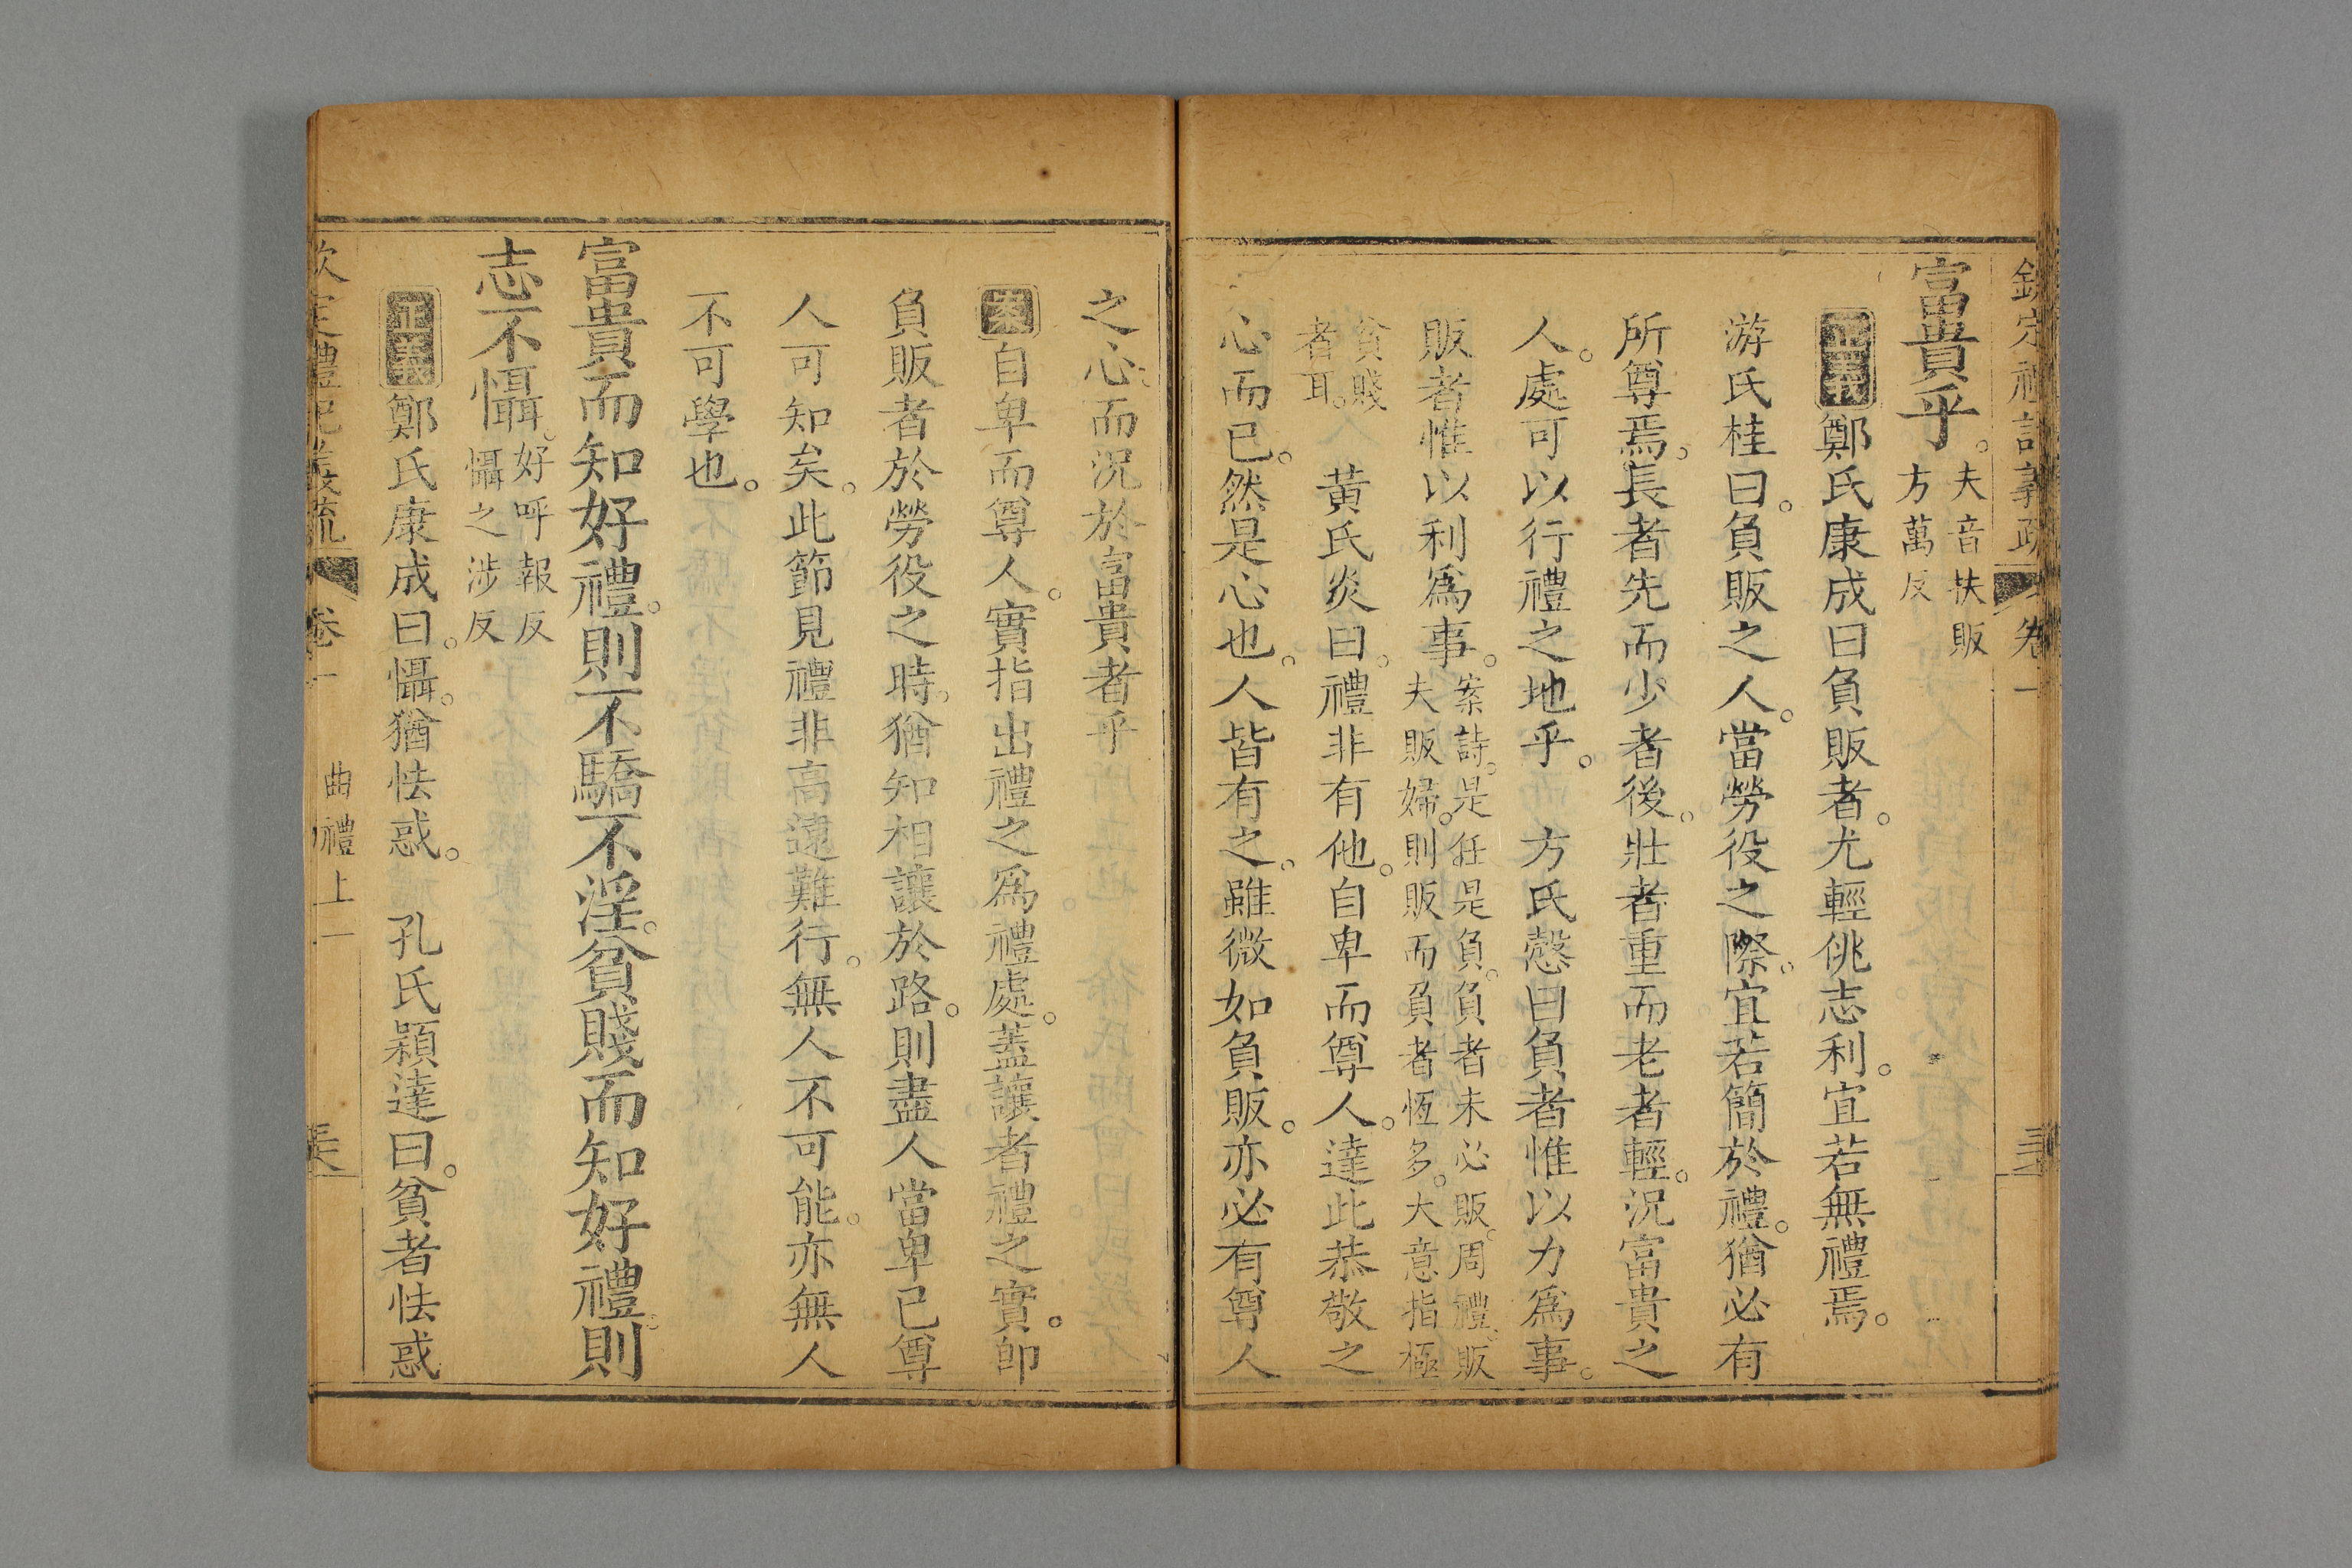 富貴乎。夫音扶販
方萬反
正義鄭氏康成曰負販者。尤輕佻志利。宜若無禮焉。
游氏桂曰。負販之人。當勞役之際。宜若簡於禮。猶必有
所尊焉。長者先而少者後。壯者重而老者輕。況富貴之
人。處可以行禮之地乎。 方氏慤曰負者惟以力為事。
販者惟以利為事。案詩。是任是負。負者未必販。周禮。販
夫販婦。則販而負者恆多。大意指極
貧賤
者耳。 黃氏炎曰。禮非有他。自卑而尊人。達此恭敬之
心而已。然是心也。人皆有之。雖微如負販。亦必有尊人
之心。而況於富貴者乎
案自卑而尊人。實指出禮之為禮處。蓋讓者禮之實。卽
負販者於勞役之時。猶知相讓於路。則盡人當卑己尊
人可知矣。此節見禮非高遠難行。無人不可能。亦無人
不可學也。
富貴而知好禮。則不驕不淫。貧賤而知好禮。則
志不懾。好呼報反
懾之涉反
正義鄭氏康成曰。懾。猶怯惑。 孔氏穎達曰。貧者怯惑
欽定禮記義疏 卷一 曲禮上一